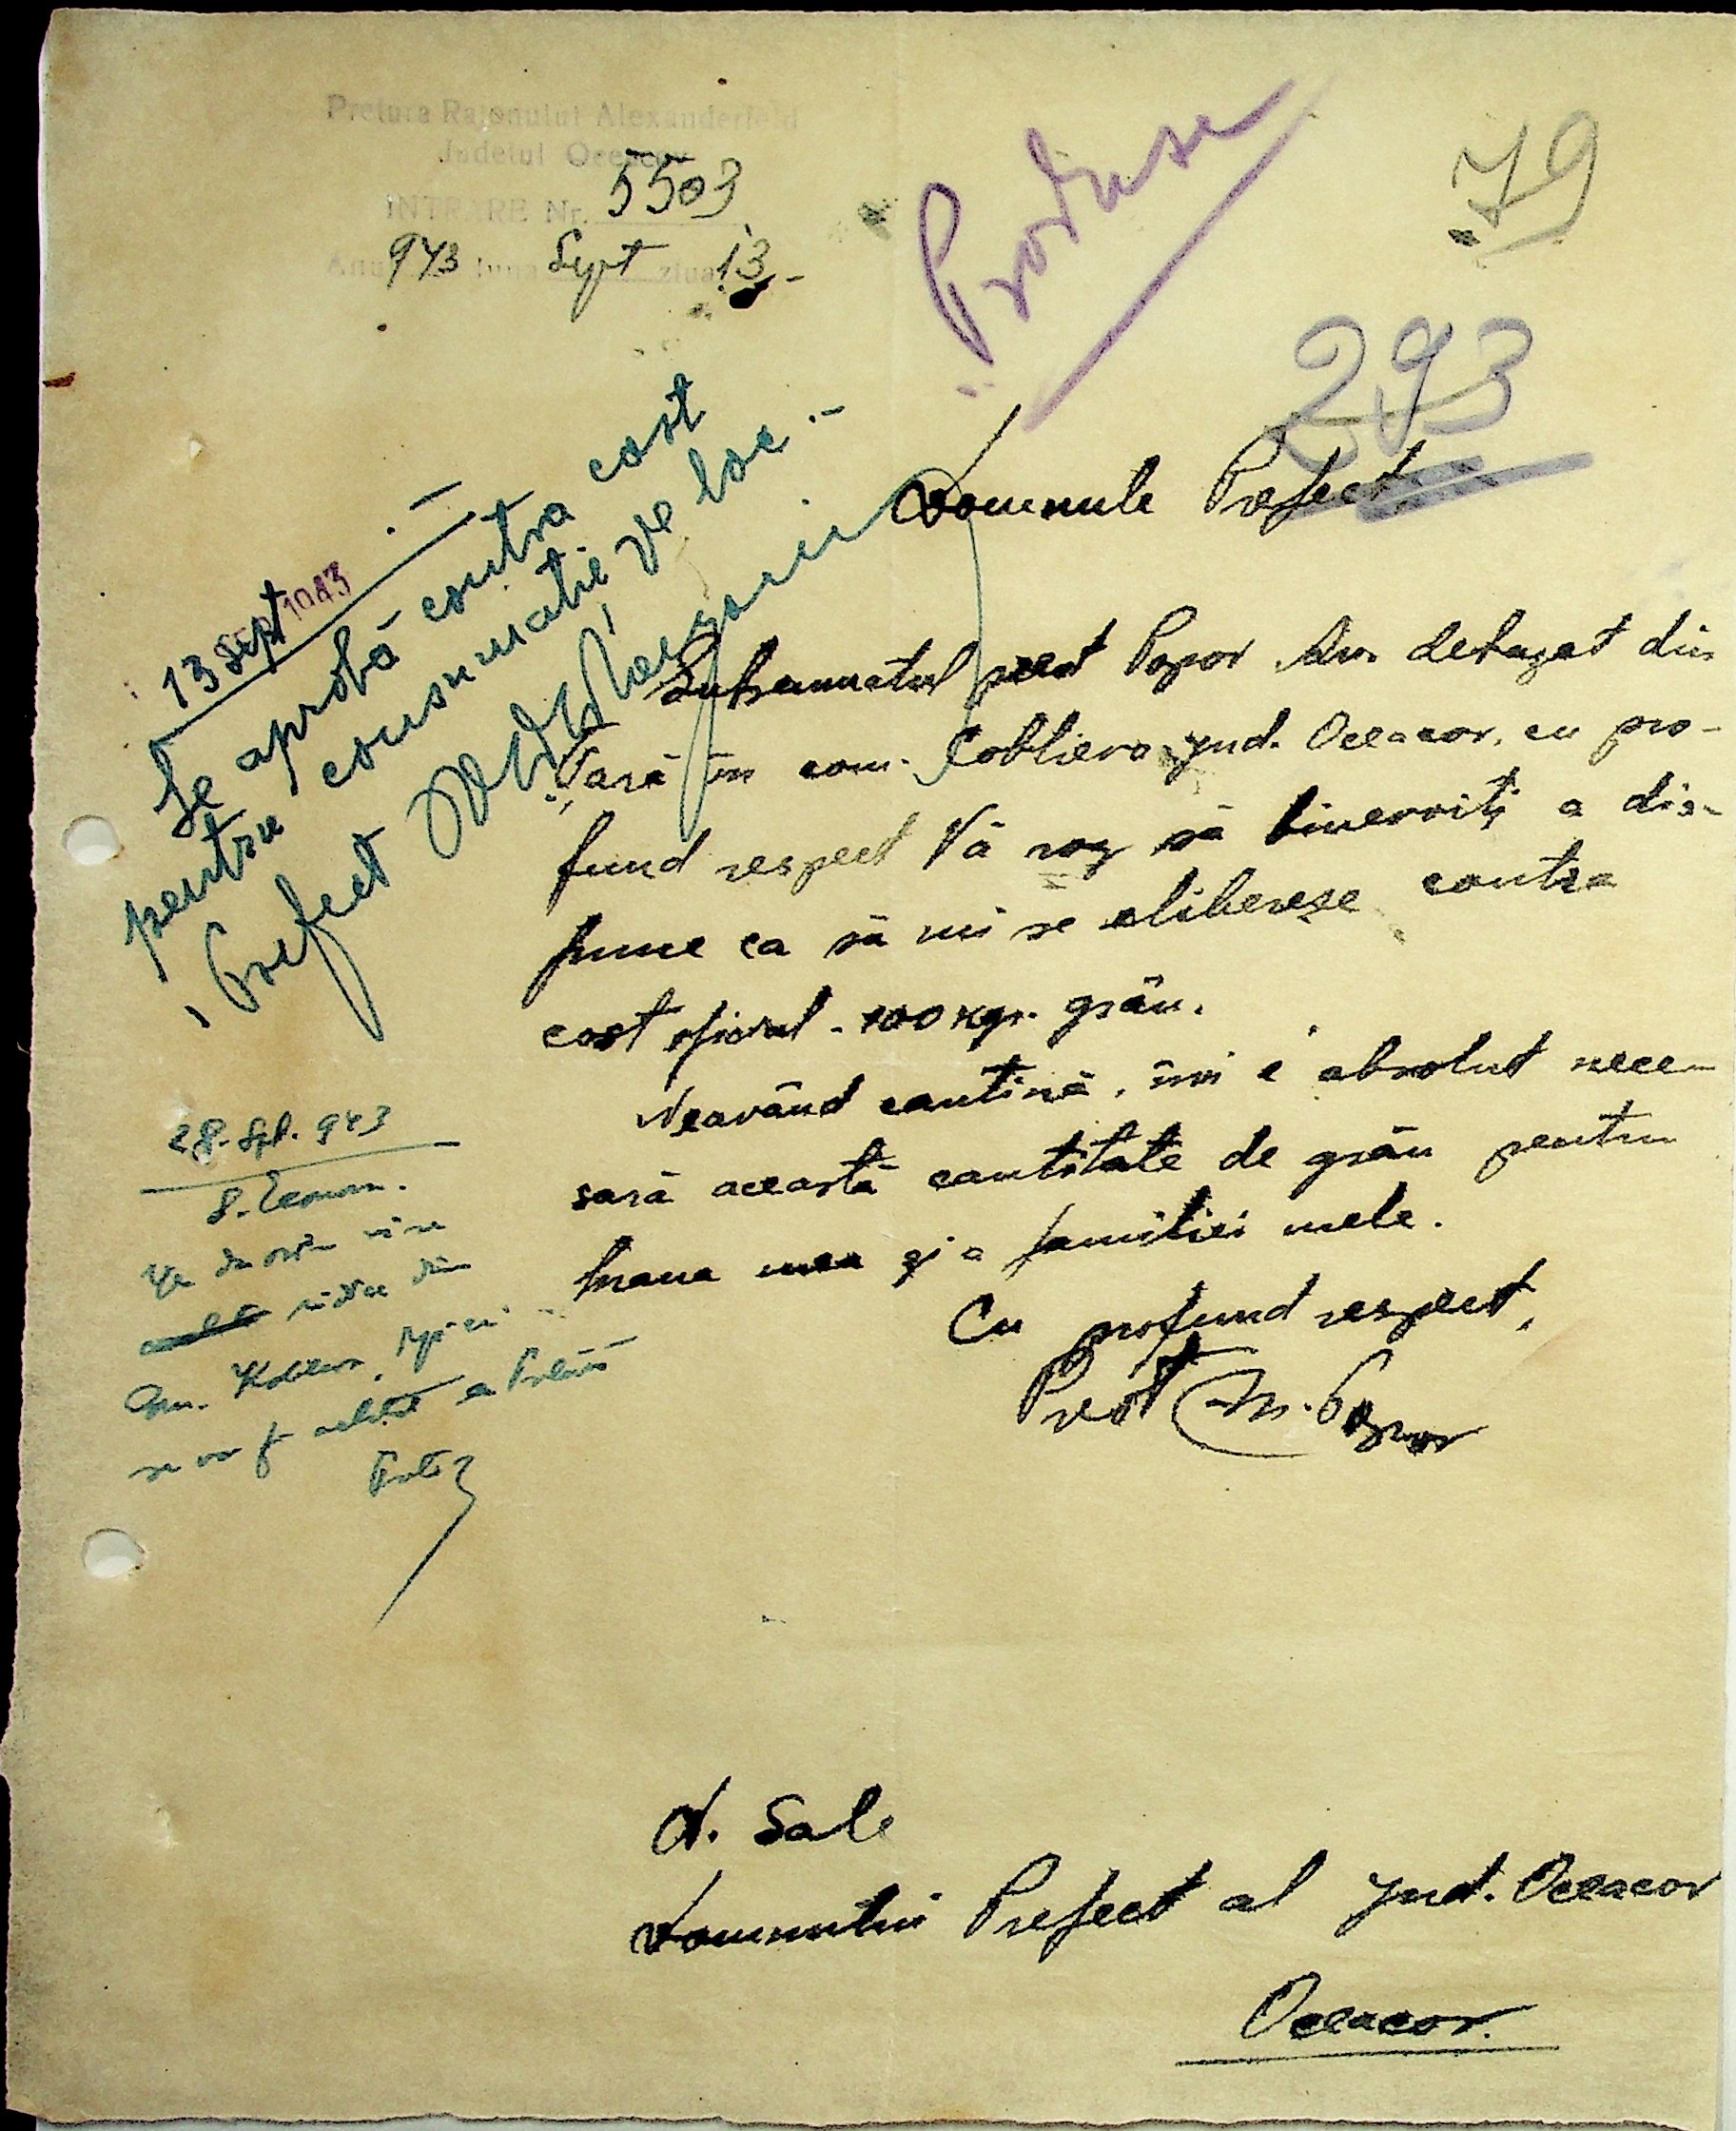 Pretura Raionului Alexanderfeld
Judetul Oceacov
INTRARE Nr. 5503
Anul 943 luna Sept ziua 13
Produse
79
293
13 Sept 1943
Se aprobă contra cost
pentru consumație pe loc
Prefect
Domnule Prefect
Subsemnatul preot Popov detașat din
Țară în com. Coblievo jud. Oceacov, cu pro-
fund respect Vă rog să binevoiți a dis-
pune ca să mi se elibereze contra
cost oficial - 100 kgr. grâu.
Neavând cantină, îmi e absolut nece-
sară această cantitate de grâu pentru
hrana mea și a familiei mele.
Cu profund respect,
Preot M. Popov
28. Spt. 943
S. Econom.
se vor
D. Sale
Domnului Prefect al Jud. Oceacov
Oceacov.